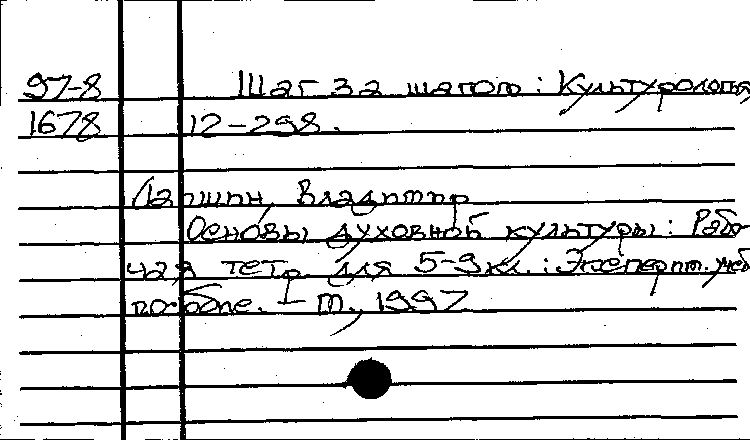 97-8 Шаг за шагом: Культурология
1678 12-298.
Ларшин, Владимир
Основы духовной культуры: Рабо-
чая тетр для 5-9 кл.: Эксперим. учеб
пособие. - М., 1997